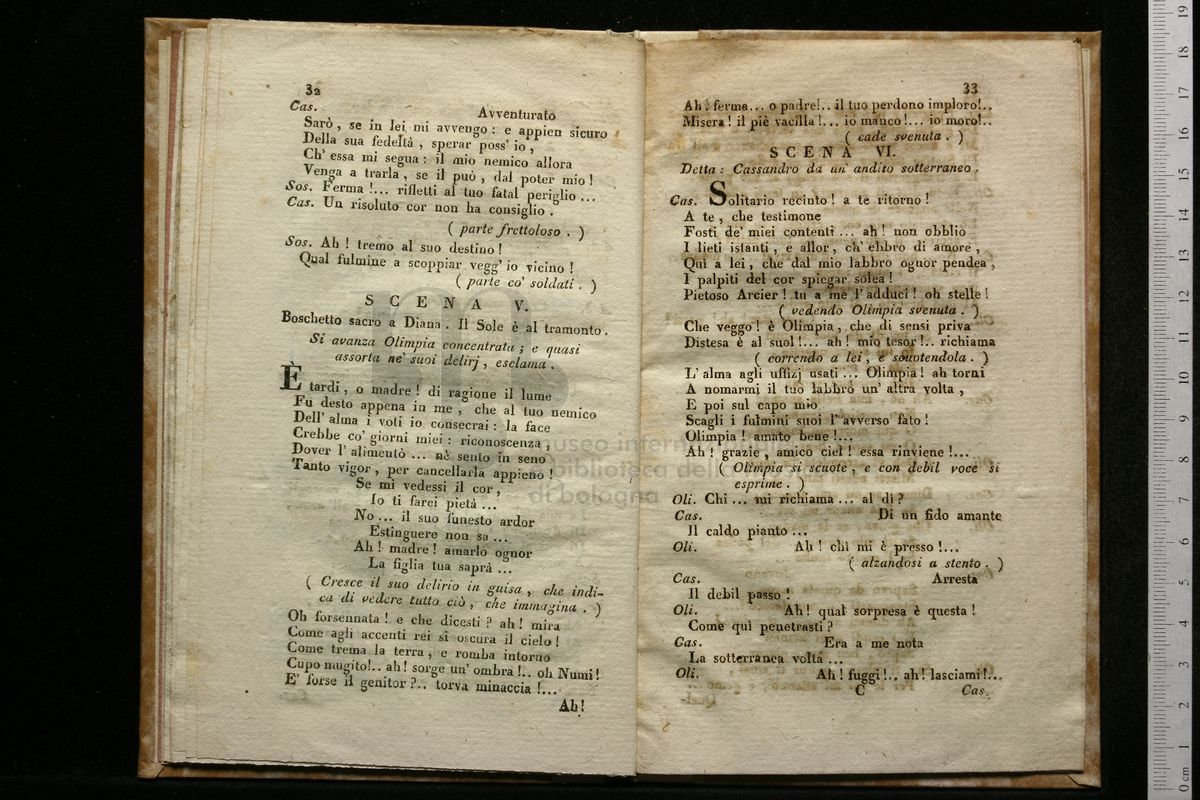 32
Cas. Avventurato
Sarò, se in lei mi avvengo: e appien sicuro
Della sua fedeltà, sperar poss' io,
Ch' essa mi segua: il mio nemico allora
Venga a trarla, se il può, dal poter mio!
Sos. Ferma!... rifletti al tuo fatal periglio...
Cas. Un risoluto cor non ha consiglio.
( parte frettoloso. )
Sos. Ah! tremo al suo destino!
Qual fulmine a scoppiar vegg' io vicino!
( parte co' soldati. )
SCENA V.
Boschetto sacro a Diana. Il Sole è al tramonto.
Si avanza Olimpia concentrata; e quasi
assorta ne' suoi delirj, esclama.
È tardi, o madre! di ragione il lume
Fu desto appena in me, che al tuo nemico
Dell' alma i voti io consecrai: la face
Crebbe co' giorni miei: riconoscenza,
Dover l' alimentò... nè sento in seno
Tanto vigor, per cancellarla appieno!
Se mi vedessi il cor,
Io ti farei pietà...
No... il suo funesto ardor
Estinguere non sa...
Ah! madre! amarlo ognor
La figlia tua saprà...
( Cresce il suo delirio in guisa, che indi-
ca di vedere tutto ciò, che immagina. )
Oh forsennata! e che dicesti? ah! mira
Come agli accenti rei si oscura il cielo!
Come trema la terra, e romba intorno
Cupo mugito!.. ah! sorge un' ombra!.. oh Numi!
E' forse il genitor?.. torva minaccia!...
Ah!
33
Ah! ferma... o padre!.. il tuo perdono imploro!..
Misera! il piè vacilla!... io manco!... io moro!..
( cade svenuta. )
SCENA VI.
Detta: Cassandro da un' andito sotterraneo.
Cas. Solitario recinto! a te ritorno!
A te, che testimone
Fosti de' miei contenti... ah! non obblio
I lieti istanti, e allor, ch' ebbro di amore,
Quì a lei, che dal mio labbro ognor pendea,
I palpiti del cor spiegar solea!
Pietoso Arcier! tu a me l' adduci! oh stelle!
( vedendo Olimpia svenuta. )
Che veggo! è Olimpia, che di sensi priva
Distesa è al suol!... ah! mio tesor!.. richiama
( correndo a lei, e scuotendola. )
L' alma agli uffizj usati... Olimpia! ah torni
A nomarmi il tuo labbro un' altra volta,
E poi sul capo mio
Scagli i fulmini suoi l' avverso fato!
Olimpia! amato bene!...
Ah! grazie, amico ciel! essa rinviene!...
( Olimpia si scuote, e con debil voce si
esprime. )
Oli. Chi... mi richiama... al dì?
Cas. Di un fido amante
Il caldo pianto...
Oli. Ah! chi mi è presso!...
( alzandosi a stento. )
Cas. Arresta
Il debil passo!
Oli. Ah! qual sorpresa è questa!
Come quì penetrasti?
Cas. Era a me nota
La sotterranea volta...
Oli. Ah! fuggi!.. ah! lasciami!...
C Cas.